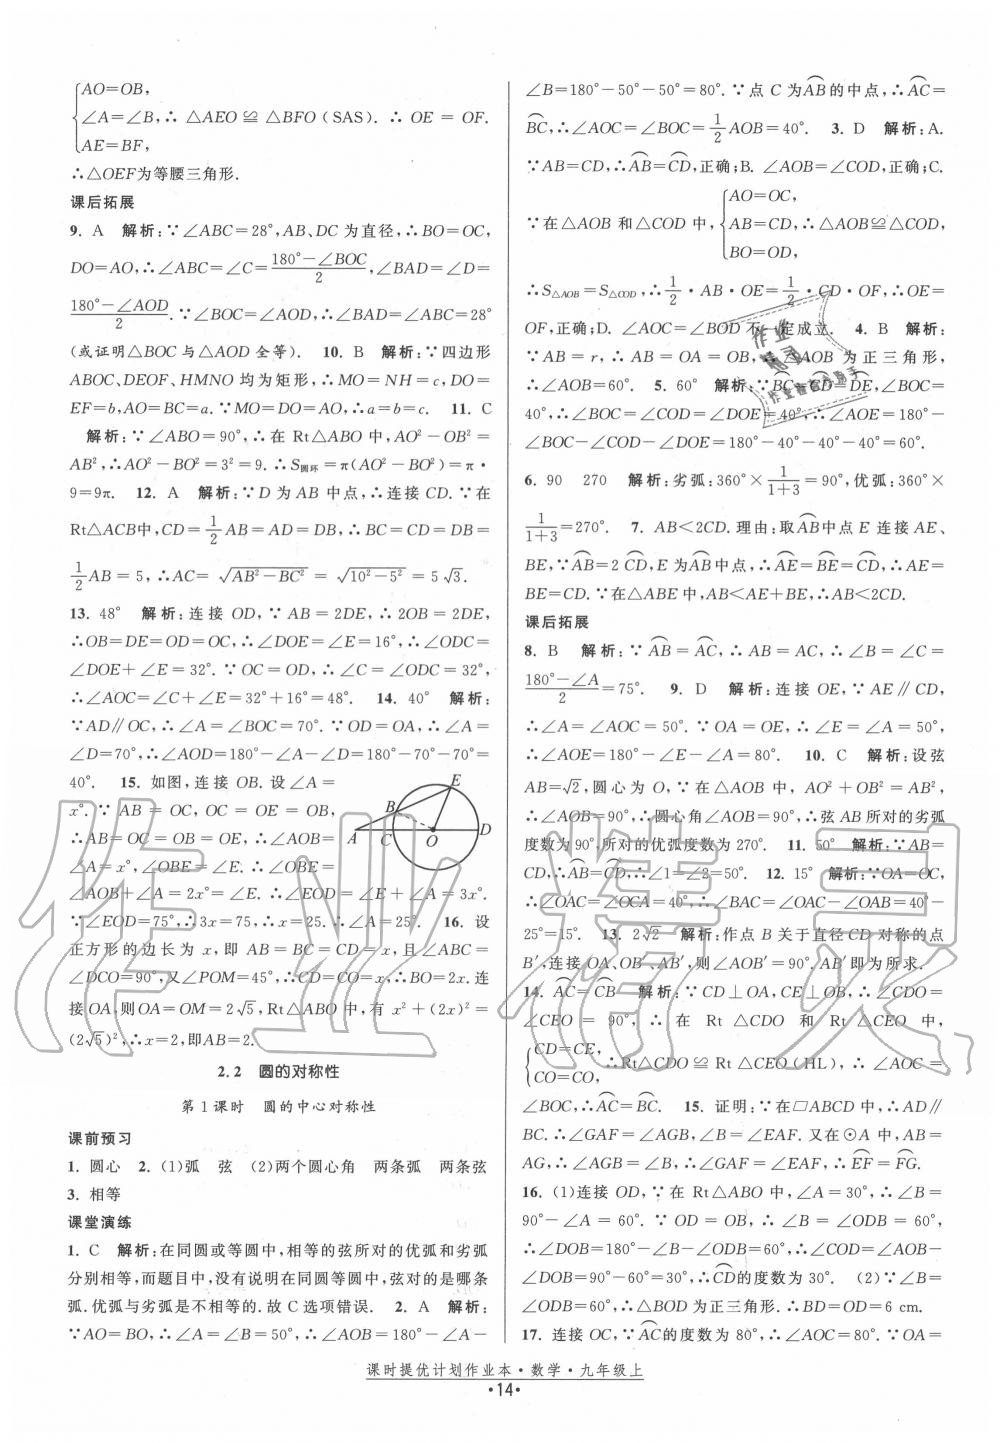 AO=OB,
∠A=∠B,∴ △AEO ≌ △BFO (SAS). ∴ OE = OF.
AE=BF,
∴△OEF为等腰三角形.
课后拓展
9. A 解析:∵∠ABC=28°,AB、DC为直径,∴BO=OC,
DO=AO,∴∠ABC=∠C=(180°-∠BOC)/2,∠BAD=∠D=
(180°-∠AOD)/2.∵∠BOC=∠AOD,∴∠BAD=∠ABC=28°
(或证明△BOC与△AOD全等). 10. B 解析:∵四边形
ABOC、DEOF、HMNO 均为矩形,∴MO=NH=c,DO=
EF=b,AO=BC=a.∵MO=DO=AO,∴a=b=c. 11. C
解析:∵∠ABO=90°,∴在 Rt△ABO 中,AO²-OB²=
AB²,∴AO²-BO²=3²=9.∴S圆环=π(AO²-BO²)=π·
9=9π. 12. A 解析:∵D 为 AB 中点,∴连接 CD.∵在
Rt△ACB中,CD=1/2AB=AD=DB,∴BC=CD=DB=
1/2AB=5,∴AC=√(AB²-BC²)=√(10²-5²)=5√3.
13. 48° 解析:连接 OD,∵ AB=2DE,∴2OB=2DE,
∴OB=DE=OD=OC,∴∠DOE=∠E=16°,∴∠ODC=
∠DOE+∠E=32°.∵OC=OD,∴∠C=∠ODC=32°,
∴∠AOC=∠C+∠E=32°+16°=48°. 14. 40° 解析:
∵AD∥OC,∴∠A=∠BOC=70°.∵OD=OA,∴∠A=
∠D=70°,∴∠AOD=180°-∠A-∠D=180°-70°-70°=
40°. 15. 如图,连接 OB.设∠A=
x°.∵ AB = OC, OC = OE = OB,
∴AB=OC=OB=OE,∴∠AOB=
∠A=x°,∠OBE=∠E.∴∠OBE=
∠AOB+∠A=2x°=∠E.∴∠EOD=∠E+∠A=3x°.
∵∠EOD=75°,∴3x=75,∴x=25.∴∠A=25°. 16. 设
正方形的边长为 x,即 AB=BC=CD=x,且∠ABC=
∠DCO=90°,又∠POM=45°,∴CD=CO=x,∴BO=2x.连
接OA,则OA=OM=2√5,Rt△ABO中,有 x²+(2x)²=
(2√5)²,∴x=2,即AB=2.
E
B
A
C
O
D
2.2 圆的对称性
第1课时 圆的中心对称性
课前预习
1. 圆心 2. (1)弧 弦 (2)两个圆心角 两条弧 两条弦
3. 相等
课堂演练
1. C 解析:在同圆或等圆中,相等的弦所对的优弧和劣弧
分别相等,而题目中,没有说明在同圆等圆中,弦对的是哪条
弧.优弧与劣弧是不相等的.故 C 选项错误. 2. A 解析:
∵AO=BO,∴∠A=∠B=50°,∴∠AOB=180°-∠A-
∠B=180°-50°-50°=80°.∵点 C 为AB⌒的中点,∴AC⌒=
BC⌒,∴∠AOC=∠BOC=1/2AOB=40°. 3. D 解析:A.
∵AB=CD,∴AB⌒=CD⌒,正确;B. ∠AOB=∠COD,正确;C.
∵在△AOB 和△COD 中,
AO=OC,
AB=CD,∴△AOB≌△COD,
BO=OD,
∴S△AOB=S△COD,∴1/2·AB·OE=1/2·CD·OF,∴OE=
OF,正确;D. ∠AOC=∠BOD 不一定成立. 4. B 解析:
∵AB = r,∴ AB = OA = OB,∴△AOB 为正三角形,
∴∠AOB=60°. 5. 60° 解析:∵BC⌒=CD⌒=DE⌒,∠BOC=
40°,∴∠BOC=∠COD=∠DOE=40°,∴∠AOE=180°-
∠BOC-∠COD-∠DOE=180°-40°-40°-40°=60°.
6. 90 270 解析:劣弧:360°×1/(1+3)=90°,优弧:360°×
1/(1+3)=270°. 7. AB<2CD.理由:取AB⌒中点 E 连接 AE、
BE,∵AB⌒=2CD⌒,E为AB⌒中点,∴AE⌒=BE⌒=CD⌒,∴AE=
BE=CD.∵在△ABE 中,AB<AE+BE,∴AB<2CD.
课后拓展
8. B 解析:∵AB⌒=AC⌒,∴AB=AC,∴∠B=∠C=
(180°-∠A)/2=75°. 9. D 解析:连接 OE,∵AE∥CD,
∴∠A=∠AOC=50°.∵OA=OE,∴∠E=∠A=50°,
∴∠AOE=180°-∠E-∠A=80°. 10. C 解析:设弦
AB=√2,圆心为 O,在△AOB 中,AO²+OB²=AB²,
∴∠AOB=90°,∴圆心角∠AOB=90°,∴弦 AB 所对的劣弧
度数为90°,所对的优弧度数为 270°. 11. 50° 解析:∵AB=
CD,∴AB⌒=CD⌒,∴∠1=∠2=50°. 12. 15° 解析:∵OA=OC,
∴∠OAC=∠OCA=40°,∴∠BAC=∠OAC-∠OAB=40°-
25°=15°. 13. 2√2 解析:作点 B 关于直径CD 对称的点
B′,连接 OA、OB′、AB′,则∠AOB′=90°.AB′即为所求.
14. AC⌒=CB⌒ 解析:∵CD⊥OA,CE⊥OB,∴∠CDO=
∠CEO = 90°, ∴ 在 Rt △CDO 和 Rt △CEO 中,
CD=CE,
CO=CO,
∴Rt△CDO ≌ Rt △CEO (HL),∴ ∠AOC =
∠BOC,∴AC⌒=BC⌒. 15. 证明:∵在▱ABCD 中,∴AD∥
BC.∴∠GAF=∠AGB,∠B=∠EAF.又在⊙A 中,AB=
AG,∴∠AGB=∠B,∴∠GAF=∠EAF,∴EF⌒=FG⌒.
16. (1)连接 OD,∵在 Rt△ABO 中,∠A=30°,∴∠B=
90°-∠A=60°.∵OD=OB,∴∠B=∠ODB=60°,
∴∠DOB=180°-∠B-∠ODB=60°,∴∠COD=∠AOB-
∠DOB=90°-60°=30°,∴CD⌒的度数为 30°. (2)∵∠B=
∠ODB=60°,∴△BOD 为正三角形.∴BD=OD=6 cm.
17. 连接 OC,∵AC⌒的度数为 80°,∴∠AOC=80°.∵OA=
课时提优计划作业本·数学·九年级上
·14·
作业精灵
作业精灵